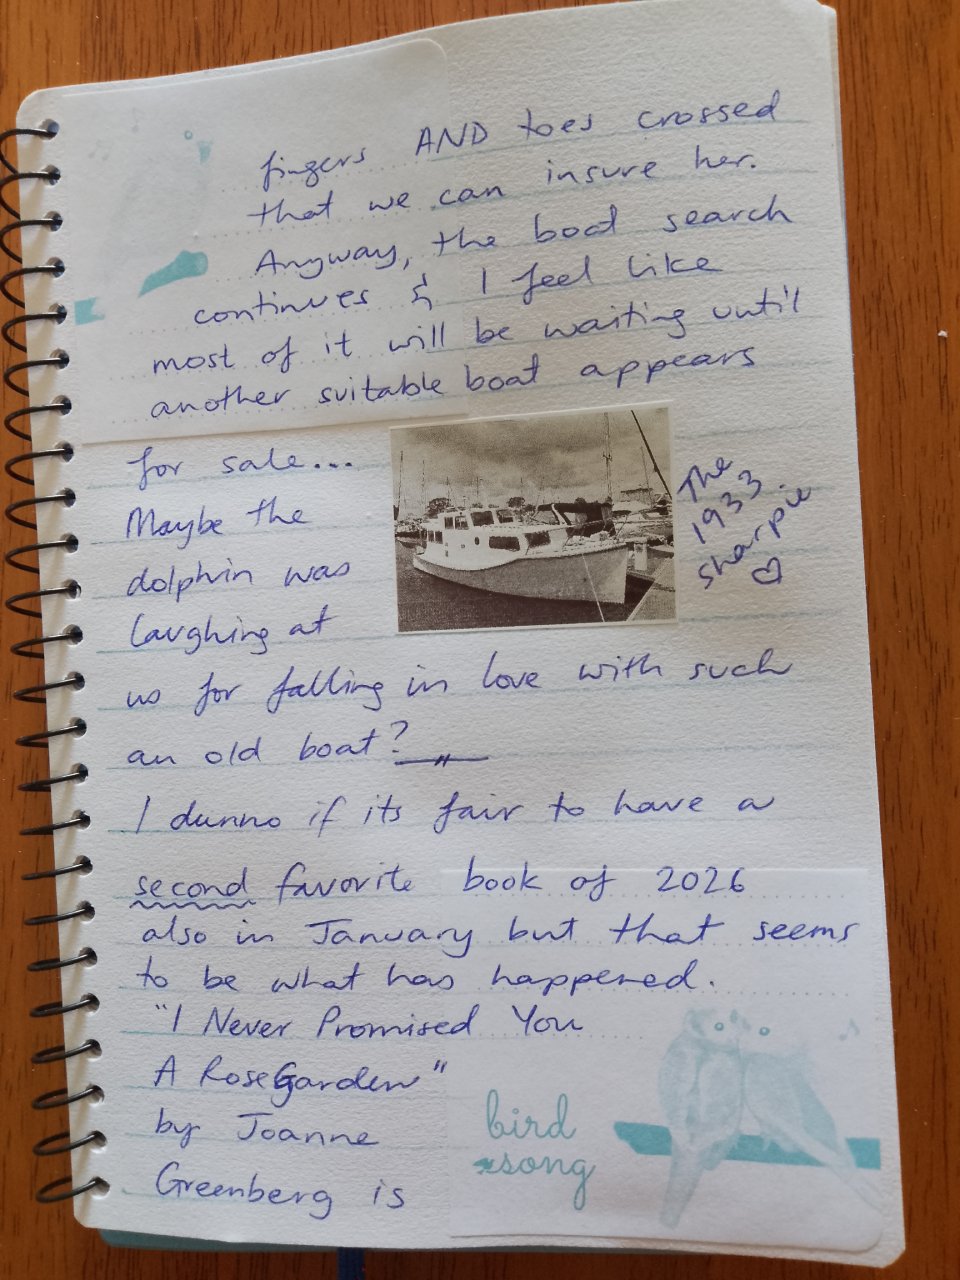 fingers AND toes crossed
that we can insure her.
Anyway, the boat search
continues & I feel like
most of it will be waiting until
another suitable boat appears
for sale...
Maybe the
dolphin was
laughing at
The
1933
sharpie
us for falling in love with such
an old boat?
I dunno if its fair to have a
second favorite book of 2026
also in January but that seems
to be what has happened.
"I Never Promised You
A Rose Garden"
by Joanne
Greenberg is
bird
song